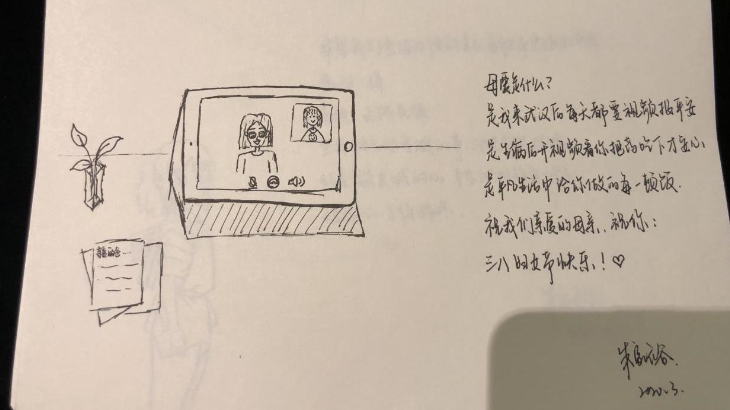 母爱是什么？
是我来武汉后每天都要视频报平安
是生病后开视频看你把药吃下才安心
是平凡生活中给你做的每一顿饭.
祝我们亲爱的母亲，祝你：
三八妇女节快乐！♡
2020.3.